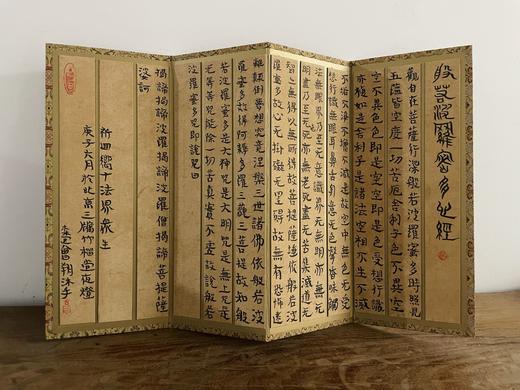 般若波羅密多心經
觀自在菩薩行深般若波羅蜜多時照見
五蘊皆空度一切苦厄舍利子色不異空
空不異色色即是空空即是色受想行識
亦復如是舍利子是諸法空相不生不滅
不垢不淨不增不減是故空中無色无受
想行識無眼耳鼻舌身意無色聲香味觸
法無眼界乃至无意識界无無明亦无无
明盡乃至无老死亦無老死盡无苦集滅道无
智亦無得以無所得故菩提薩埵依般若波
羅蜜多故心无掛礙无罣礙故無有恐怖遠
離顛倒夢想究竟涅槃三世諸佛依般若波
羅蜜多故得阿耨多羅三藐三菩提故知般
若波羅蜜多是大神咒是大明咒是無上咒是
无等等咒能除一切苦真實不虛故說般若
波羅蜜多咒即說咒曰
揭諦揭諦波羅揭諦波羅僧揭諦菩提薩
婆訶
祈四十法界衆生
庚子六月於北京三竹堂夜燈
會翔沐手